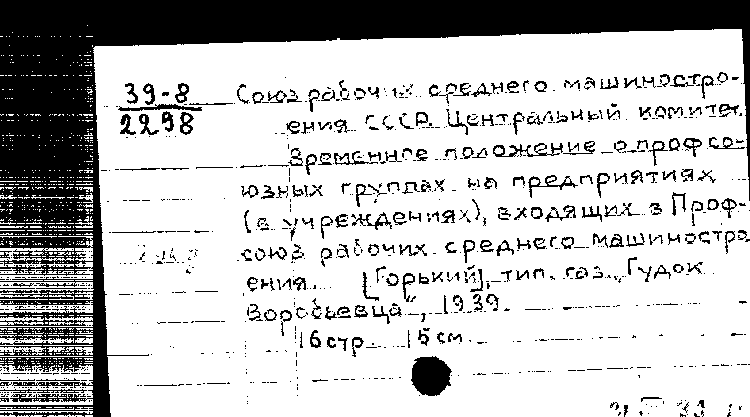 39-8
2298
Союз рабочих среднего машиностро-
ения СССР. Центральный комитет.
Временное положение о профсо-
юзных группах на предприятиях
(в учреждениях), входящих в Проф-
союз рабочих среднего машиностро
ения. [Горький], тип. газ. „Гудок
Воробьевца“, 1939.
16 стр. 15 см.